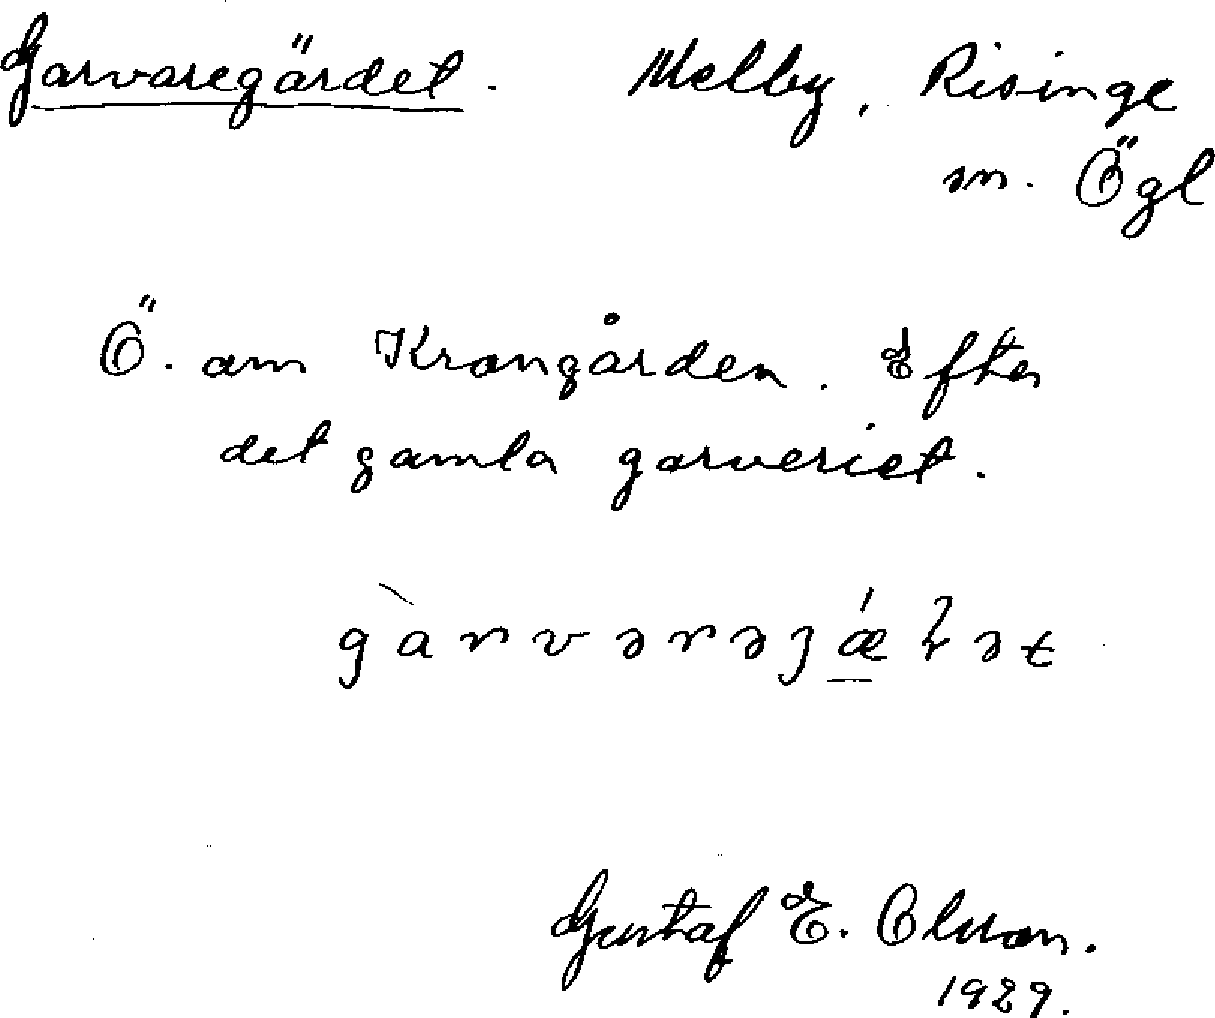 Garvaregärdet. Melby, Risinge
sn. Ögl
Ö. om Krongården. Efter
det gamla garveriet.
Gustaf E. Olsson.
1929.